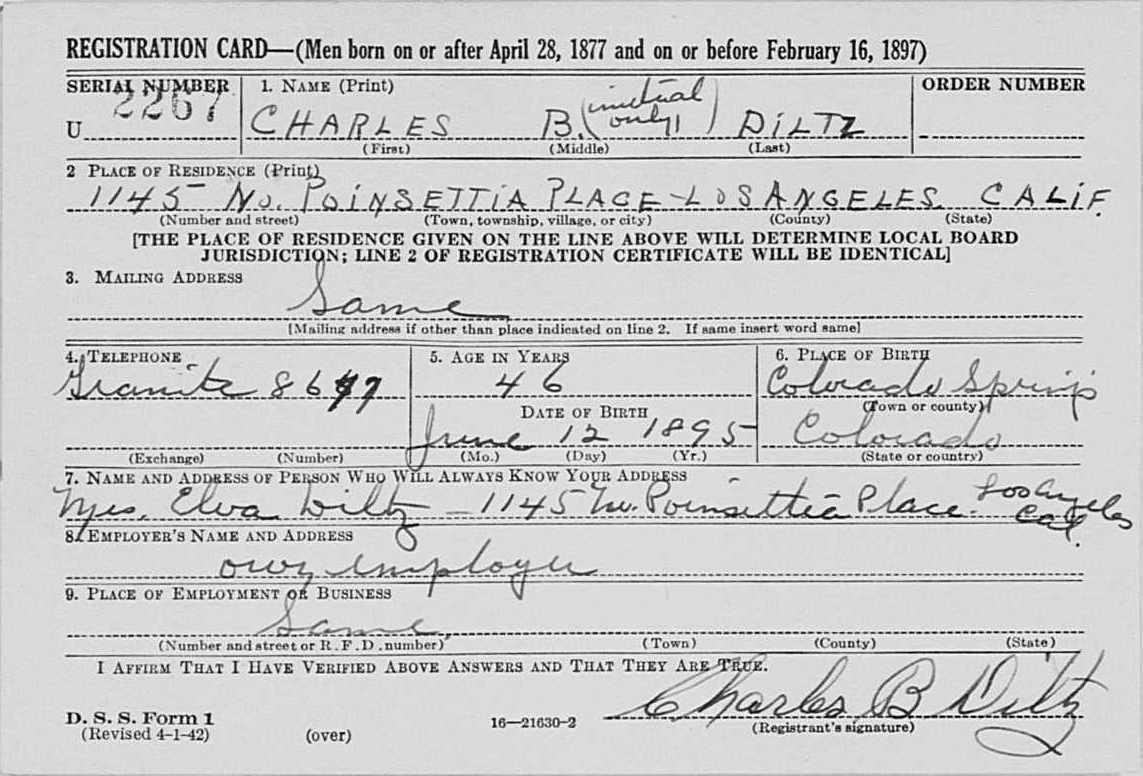 REGISTRATION CARD—(Men born on or after April 28, 1877 and on or before February 16, 1897)
SERIAL NUMBER 1. NAME (Print) ORDER NUMBER
U 2267 CHARLES B. (inetual only) DiLTZ
(First) (Middle) (Last)
2 PLACE OF RESIDENCE (Print)
1145 No. POiNSETTiA PLACE - LOS ANGELES. CALiF.
(Number and street) (Town, township, village, or city) (County) (State)
[THE PLACE OF RESIDENCE GIVEN ON THE LINE ABOVE WILL DETERMINE LOCAL BOARD
JURISDICTION; LINE 2 OF REGISTRATION CERTIFICATE WILL BE IDENTICAL]
3. MAILING ADDRESS
Same
[Mailing address if other than place indicated on line 2. If same insert word same]
4. TELEPHONE 5. AGE IN YEARS 6. PLACE OF BIRTH
Granite 8647 46 Colorado Springs
DATE OF BIRTH (Town or county)
June 12 1895 Colorado
(Exchange) (Number) (Mo.) (Day) (Yr.) (State or country)
7. NAME AND ADDRESS OF PERSON WHO WILL ALWAYS KNOW YOUR ADDRESS
Mrs. Elva Diltz - 1145 No. Poinsettia Place. Los Angeles Cal.
8. EMPLOYER'S NAME AND ADDRESS
own employer
9. PLACE OF EMPLOYMENT OR BUSINESS
Same
(Number and street or R. F. D. number) (Town) (County) (State)
I AFFIRM THAT I HAVE VERIFIED ABOVE ANSWERS AND THAT THEY ARE TRUE.
Charles B Diltz
D. S. S. Form 1 16—21630-2 (Registrant's signature)
(Revised 4-1-42) (over)